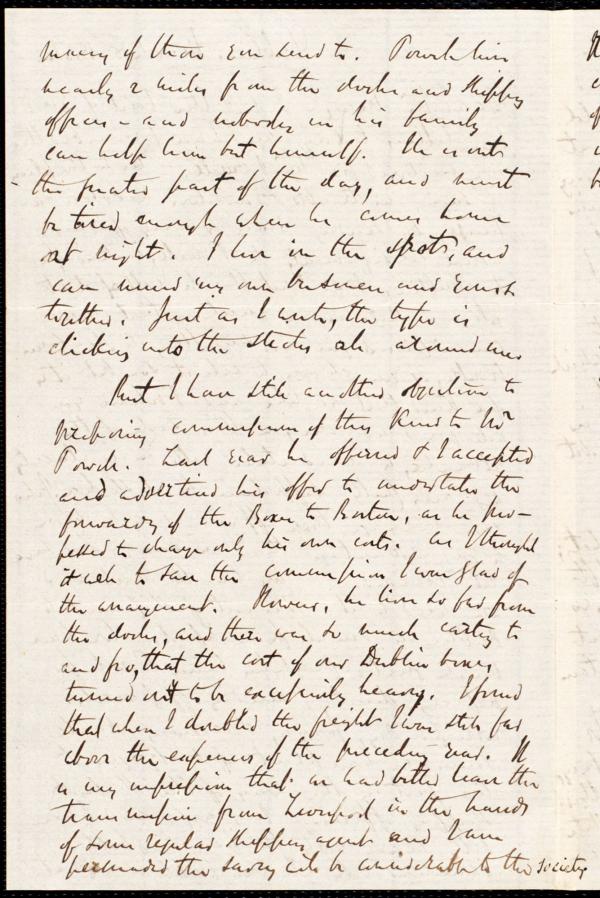 many of those you send to. Powell lives
nearly 2 miles from the docks and shipping
offices – and nobody in his family
can help him but himself. He is out
the greater part of the day, and must
be tired enough when he comes home
at night. I live in the spot, and
can mind my own business and yours
together. Just as I write, the type is
clicking into the sticks all around me
But I have still another objection to
preferring commission of this kind to Mr
Powell. Last year he offered & I accepted
and advertised his offer to undertake the
forwarding of the Boxes to Boston, as he pro-
fessed to charge only his own costs. As I thought
it well to save the commission I was glad of
the arrangement. However, he lives so far from
the docks, and there was so much carting to
and fro, that the cost of our Dublin boxes
turned out to be excessively heavy. I found
that when I doubled the freight I was still far
above the expenses of the preceding year. It
is my impression that we had better leave the
transmission from Liverpool in the hands
of some regular shipping agent and I am
persuaded the saving will be considerable to the society